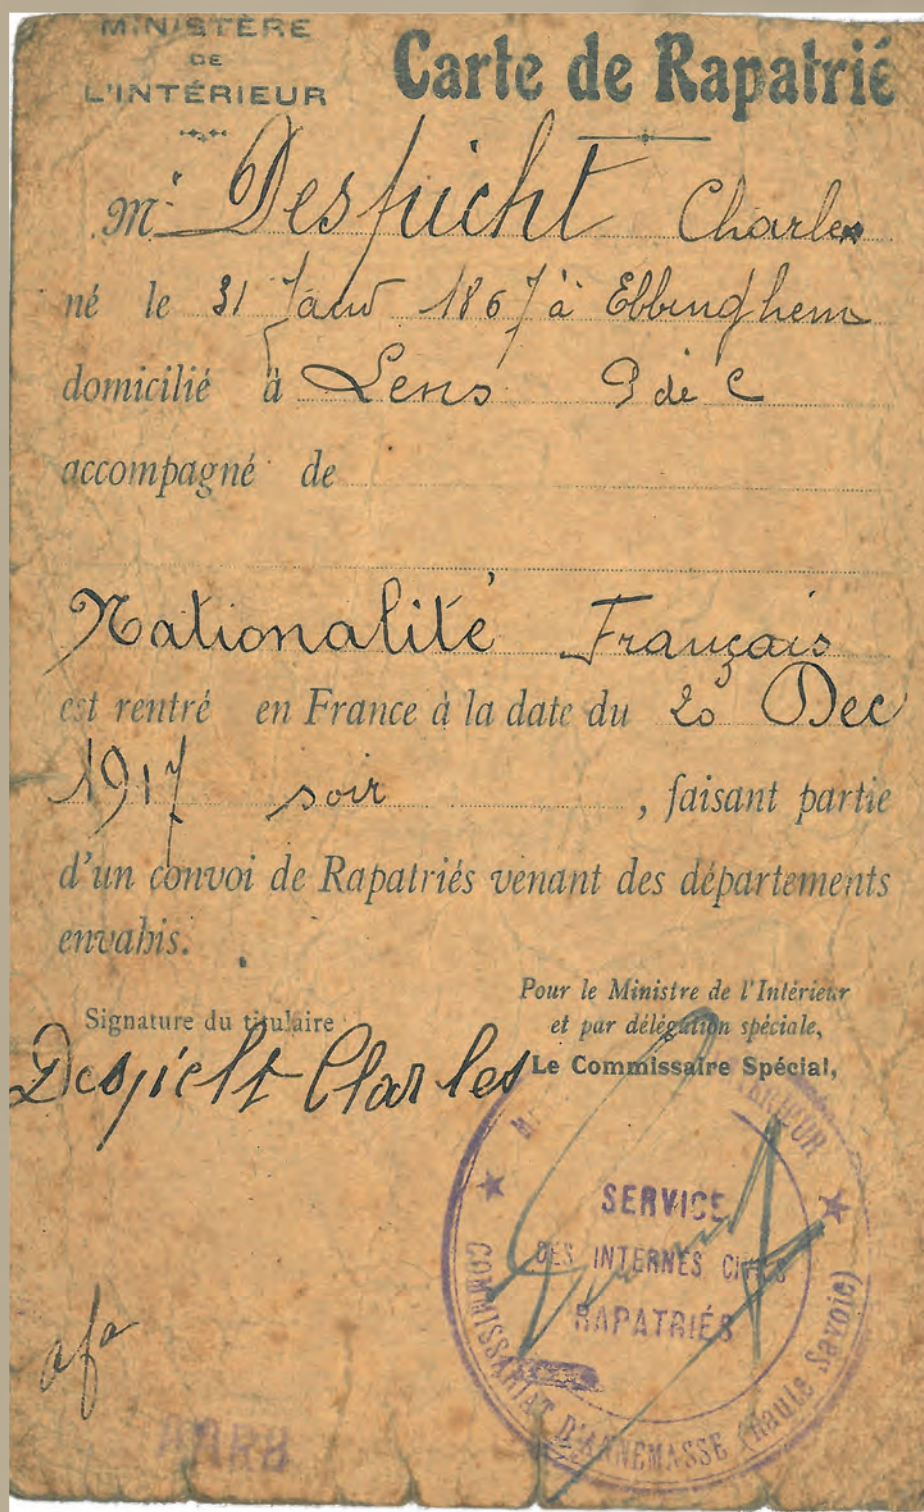 MINISTÈRE
DE
L'INTÉRIEUR
Carte de Rapatrié
Mr Despicht Charles
né le 31 Janv 1867 à Ebbinghem
domicilié à Lens P de C
accompagné de
Nationalité Français
est rentré en France à la date du 20 Dec
1917 soir , faisant partie
d'un convoi de Rapatriés venant des départements
envahis.
Pour le Ministre de l'Intérieur
et par délégation spéciale,
Le Commissaire Spécial,
Signature du titulaire
Despicht Charles
SERVICE
DES INTERNÉS CIVILS
RAPATRIÉS
COMMISSARIAT D'ANNEMASSE (Haute Savoie)